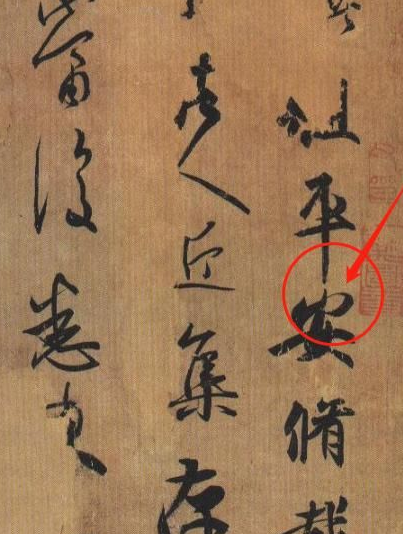 此粗平安脩載
日諸人近集存
當復悉來